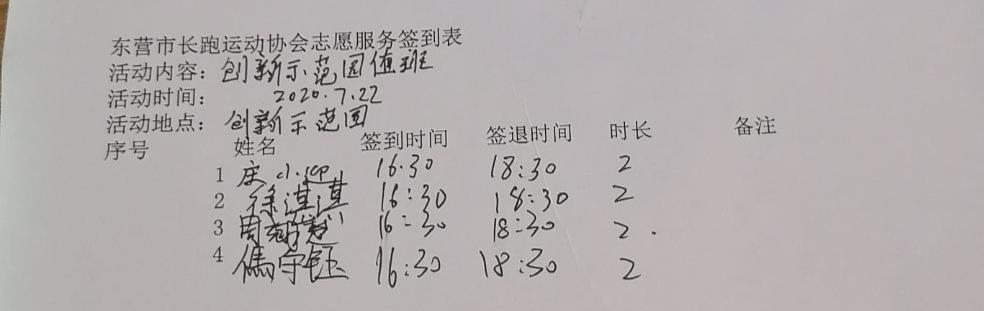 东营市长跑运动协会志愿服务签到表
活动内容：创新示范园值班
活动时间： 2020.7.22
活动地点：创新示范园
序号 姓名 签到时间 签退时间 时长 备注
1 庄小迎 16:30 18:30 2
2 徐淇淇 16:30 18:30 2
3 周 16:30 18:30 2.
4 傅守钰 16:30 18:30 2